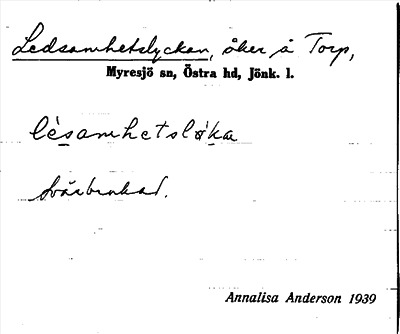 Ledsamhetslyckan, åker å Torp,
Myresjö sn, Östra hd, Jönk. l.
lèsamhetsløka
svårbrukad.
Annalisa Anderson 1939